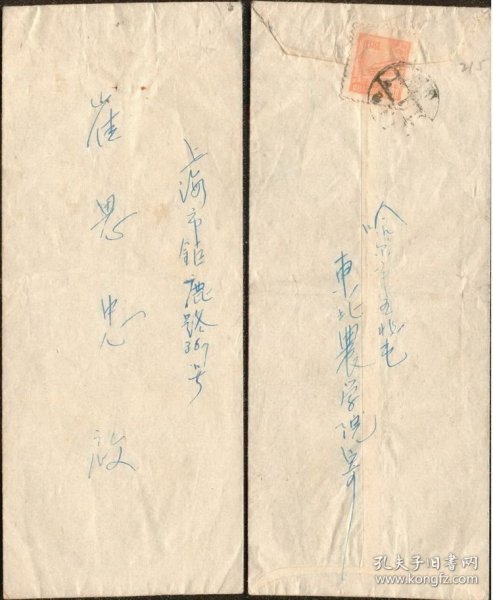 上海市鉅鹿路367号
崔思忠 啟
哈尔滨王兆屯
東北農学院寄
215
孔夫子旧书网
www.kongfz.com